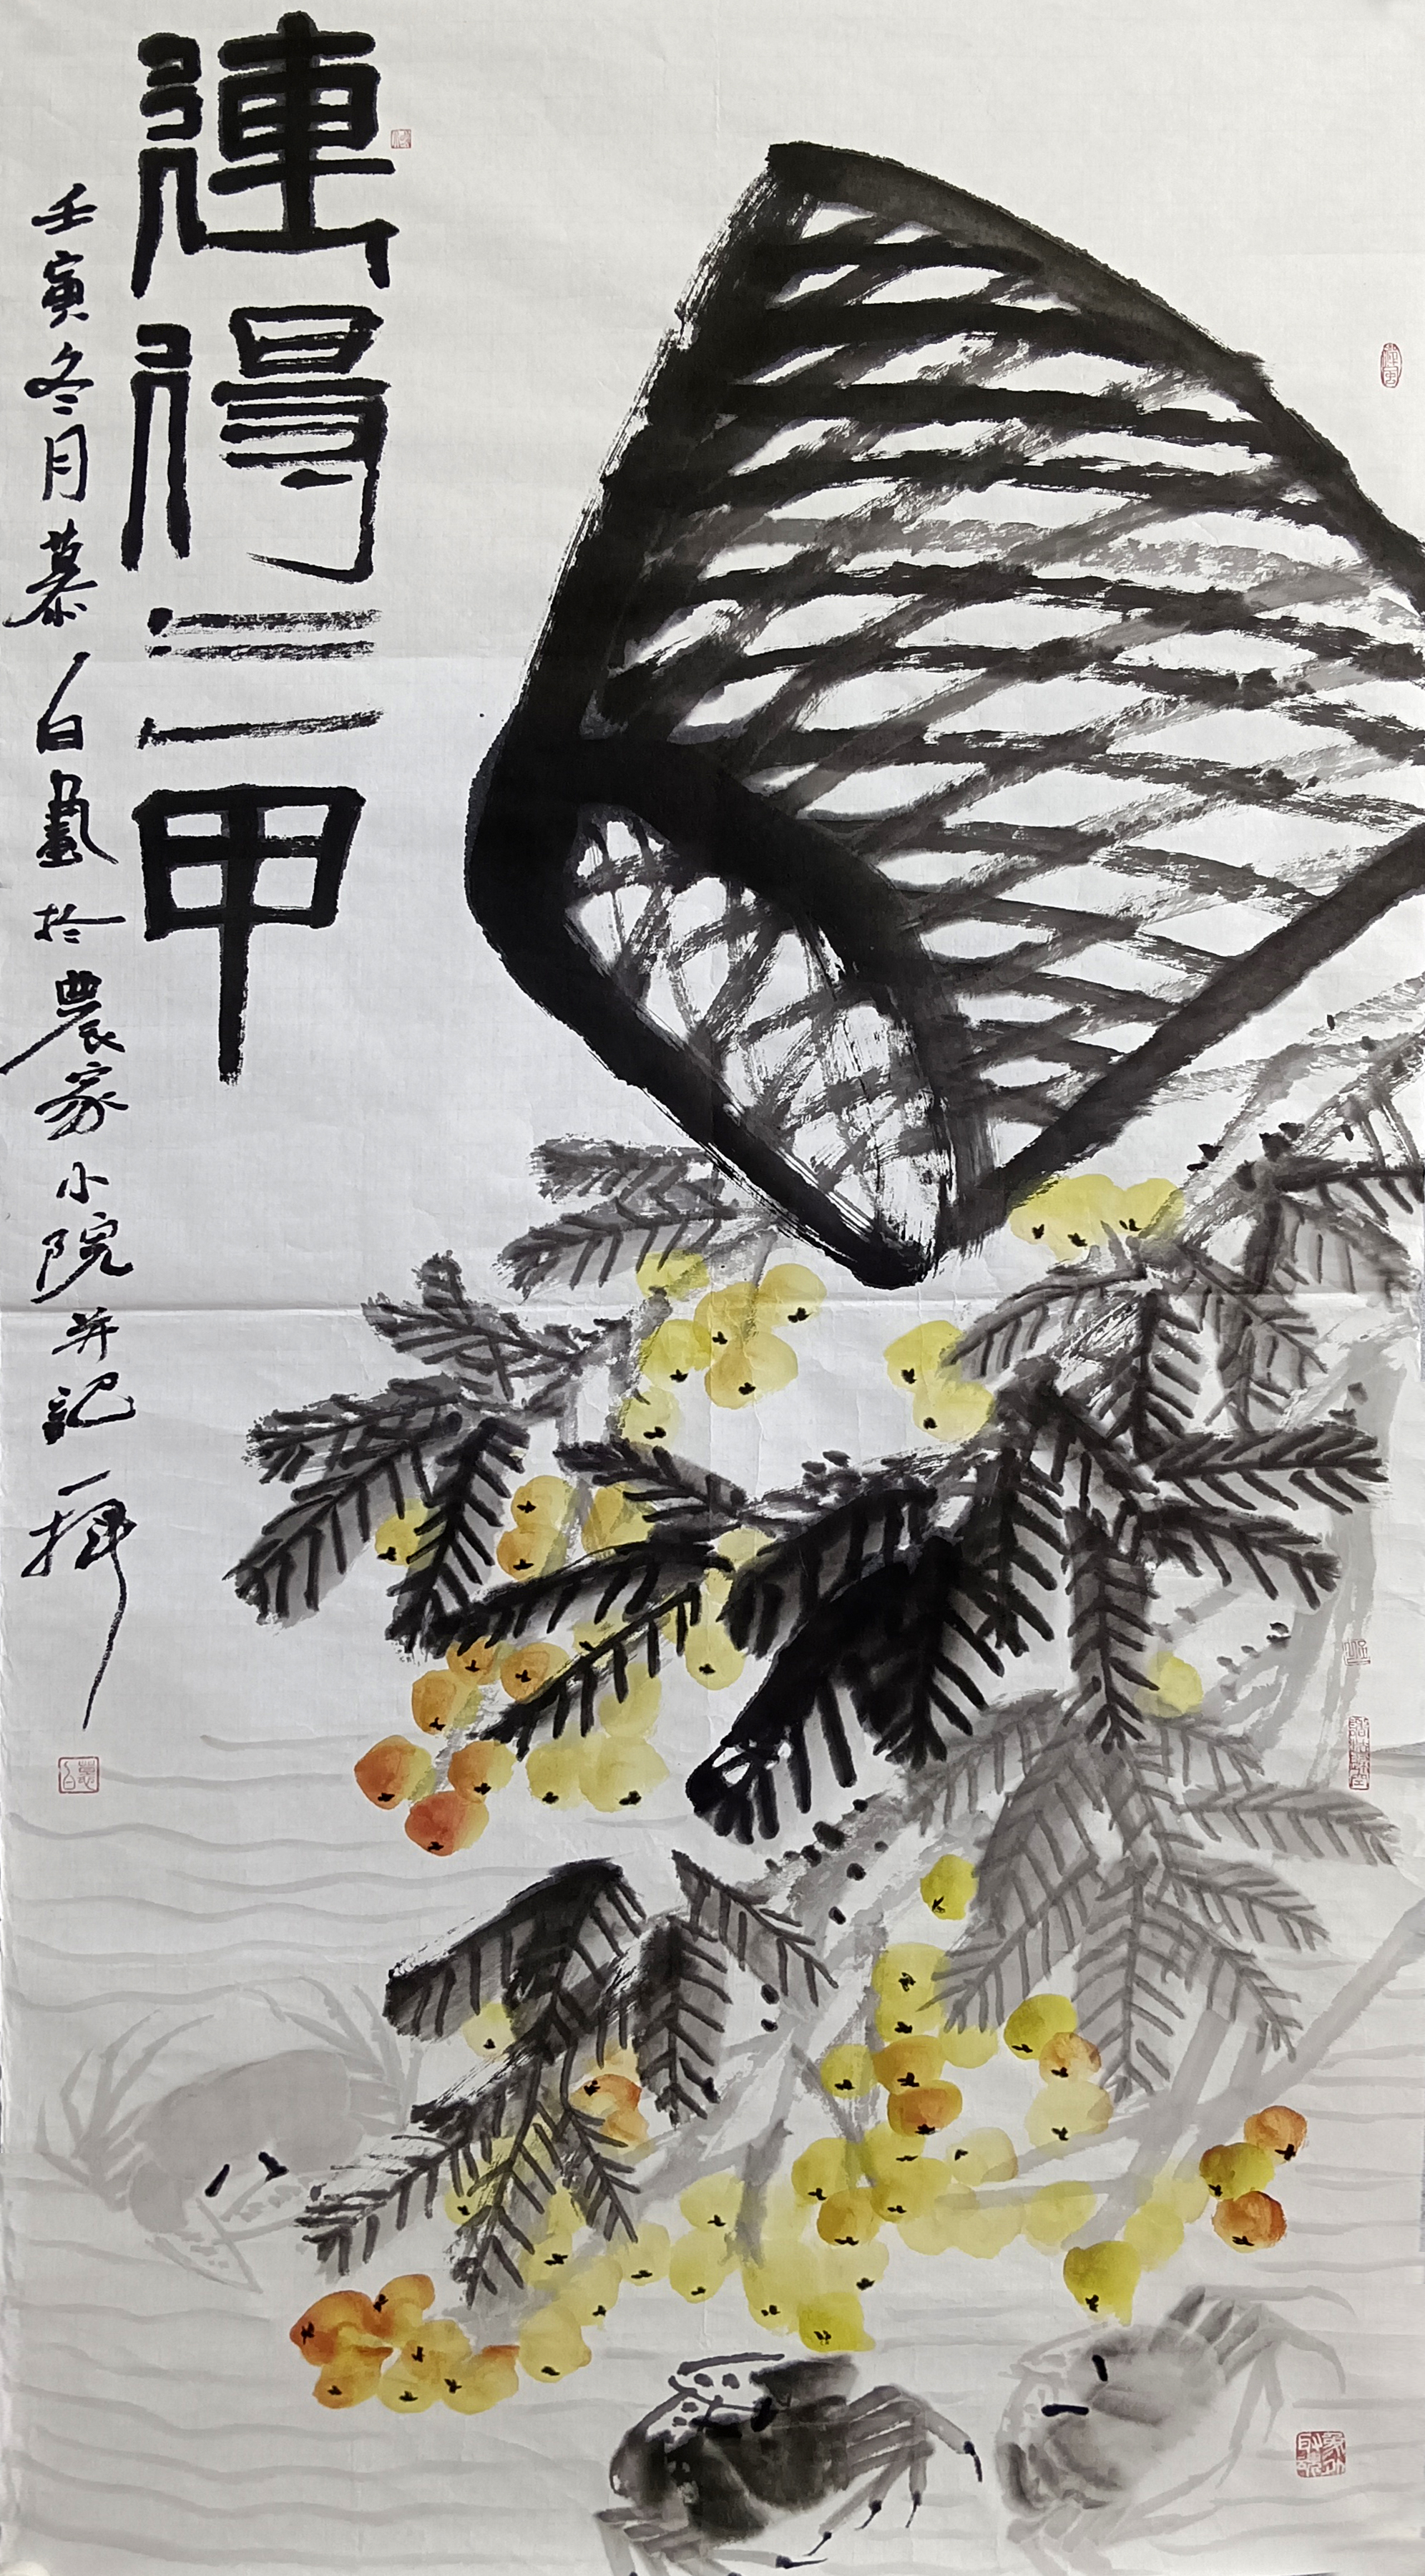 連得三甲
壬寅冬月慕白畫於農家小院并記